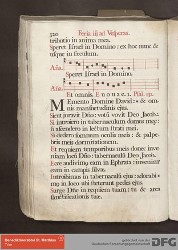 320 Feria iij ad Vesperas.
tribulatio in anima mea.
Speret Israel in Domino: ex hoc nunc &
usque in seculum.
Aña.
Speret Israel in Domino.
Aña.
Et omnis. E u o u a e. Psal. 131.
Memento Domine David: & om-
nis mansuetudinis ejus.
Sicut juravit Dño: votum vovit Deo Jacob:
Si introiero in tabernaculum domus meæ:
si ascendero in lectum strati mei.
Si dedero somnum oculis meis: & palpe-
bris meis dormitationem.
Et requiem temporibus meis donec inve-
niam locum Dño: tabernaculum Deo Jacob.
Ecce audivimus eam in Ephrata: invenimus
eam in campis silvæ.
Introibimus in tabernaculum ejus: adorabi-
mus in loco ubi steterunt pedes ejus.
Surge Dñe in requiem tuam: tu & arca
sanctificationis tuæ.
DFG